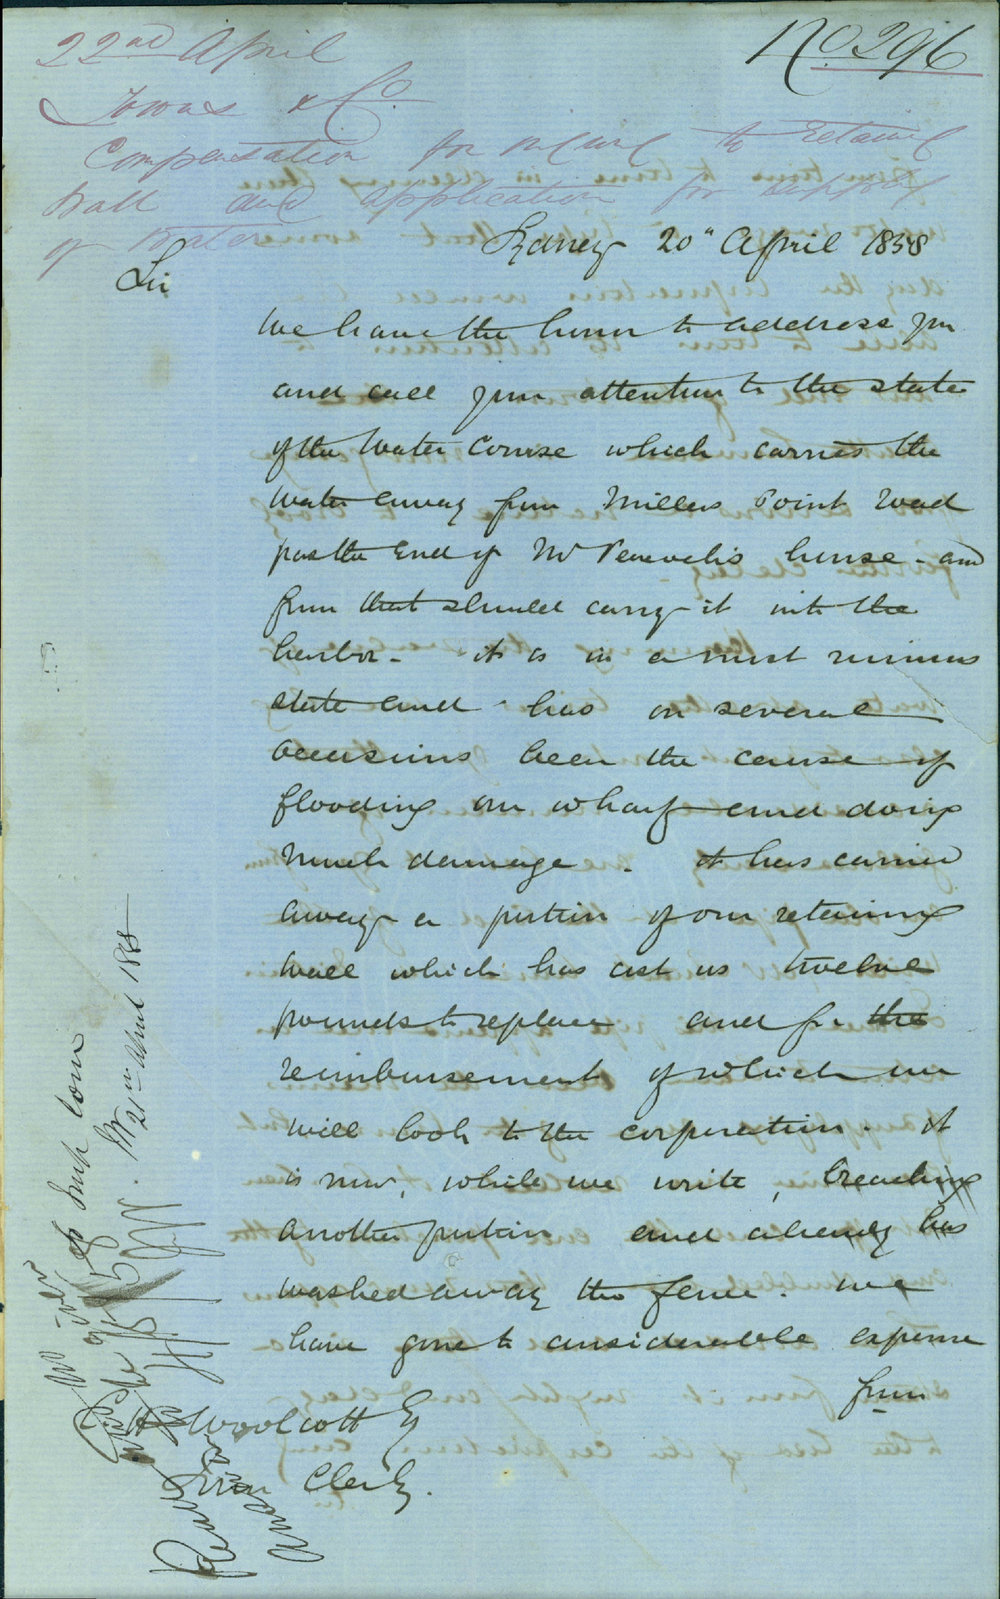 No 296
22nd April
Towns & Co.
Compensation for injury to retaining
Wall and application for supply
of Water
Sydney 20" April 1858
Sir
We have the honor to address you
and call your attention to the state
of the Water Course which carries the
water away from Millers Point Road
past the End of Mr house - and
from that should carry it into the
harbor - it is in a most ruinous
state and has on several
occasions been the cause of
flooding our wharf and doing
much damage. it has carried
away a portion of our retaining
wall which has cost us twelve
pounds to replace and for the
reimbursement of which we
will look to the corporation. it
is now, while we write, breaching
another portion and already has
washed away the fence. We
have gone to considerable expense
from
Woolcott Esq
Town Clerk.
Imp Com
21st April 1858